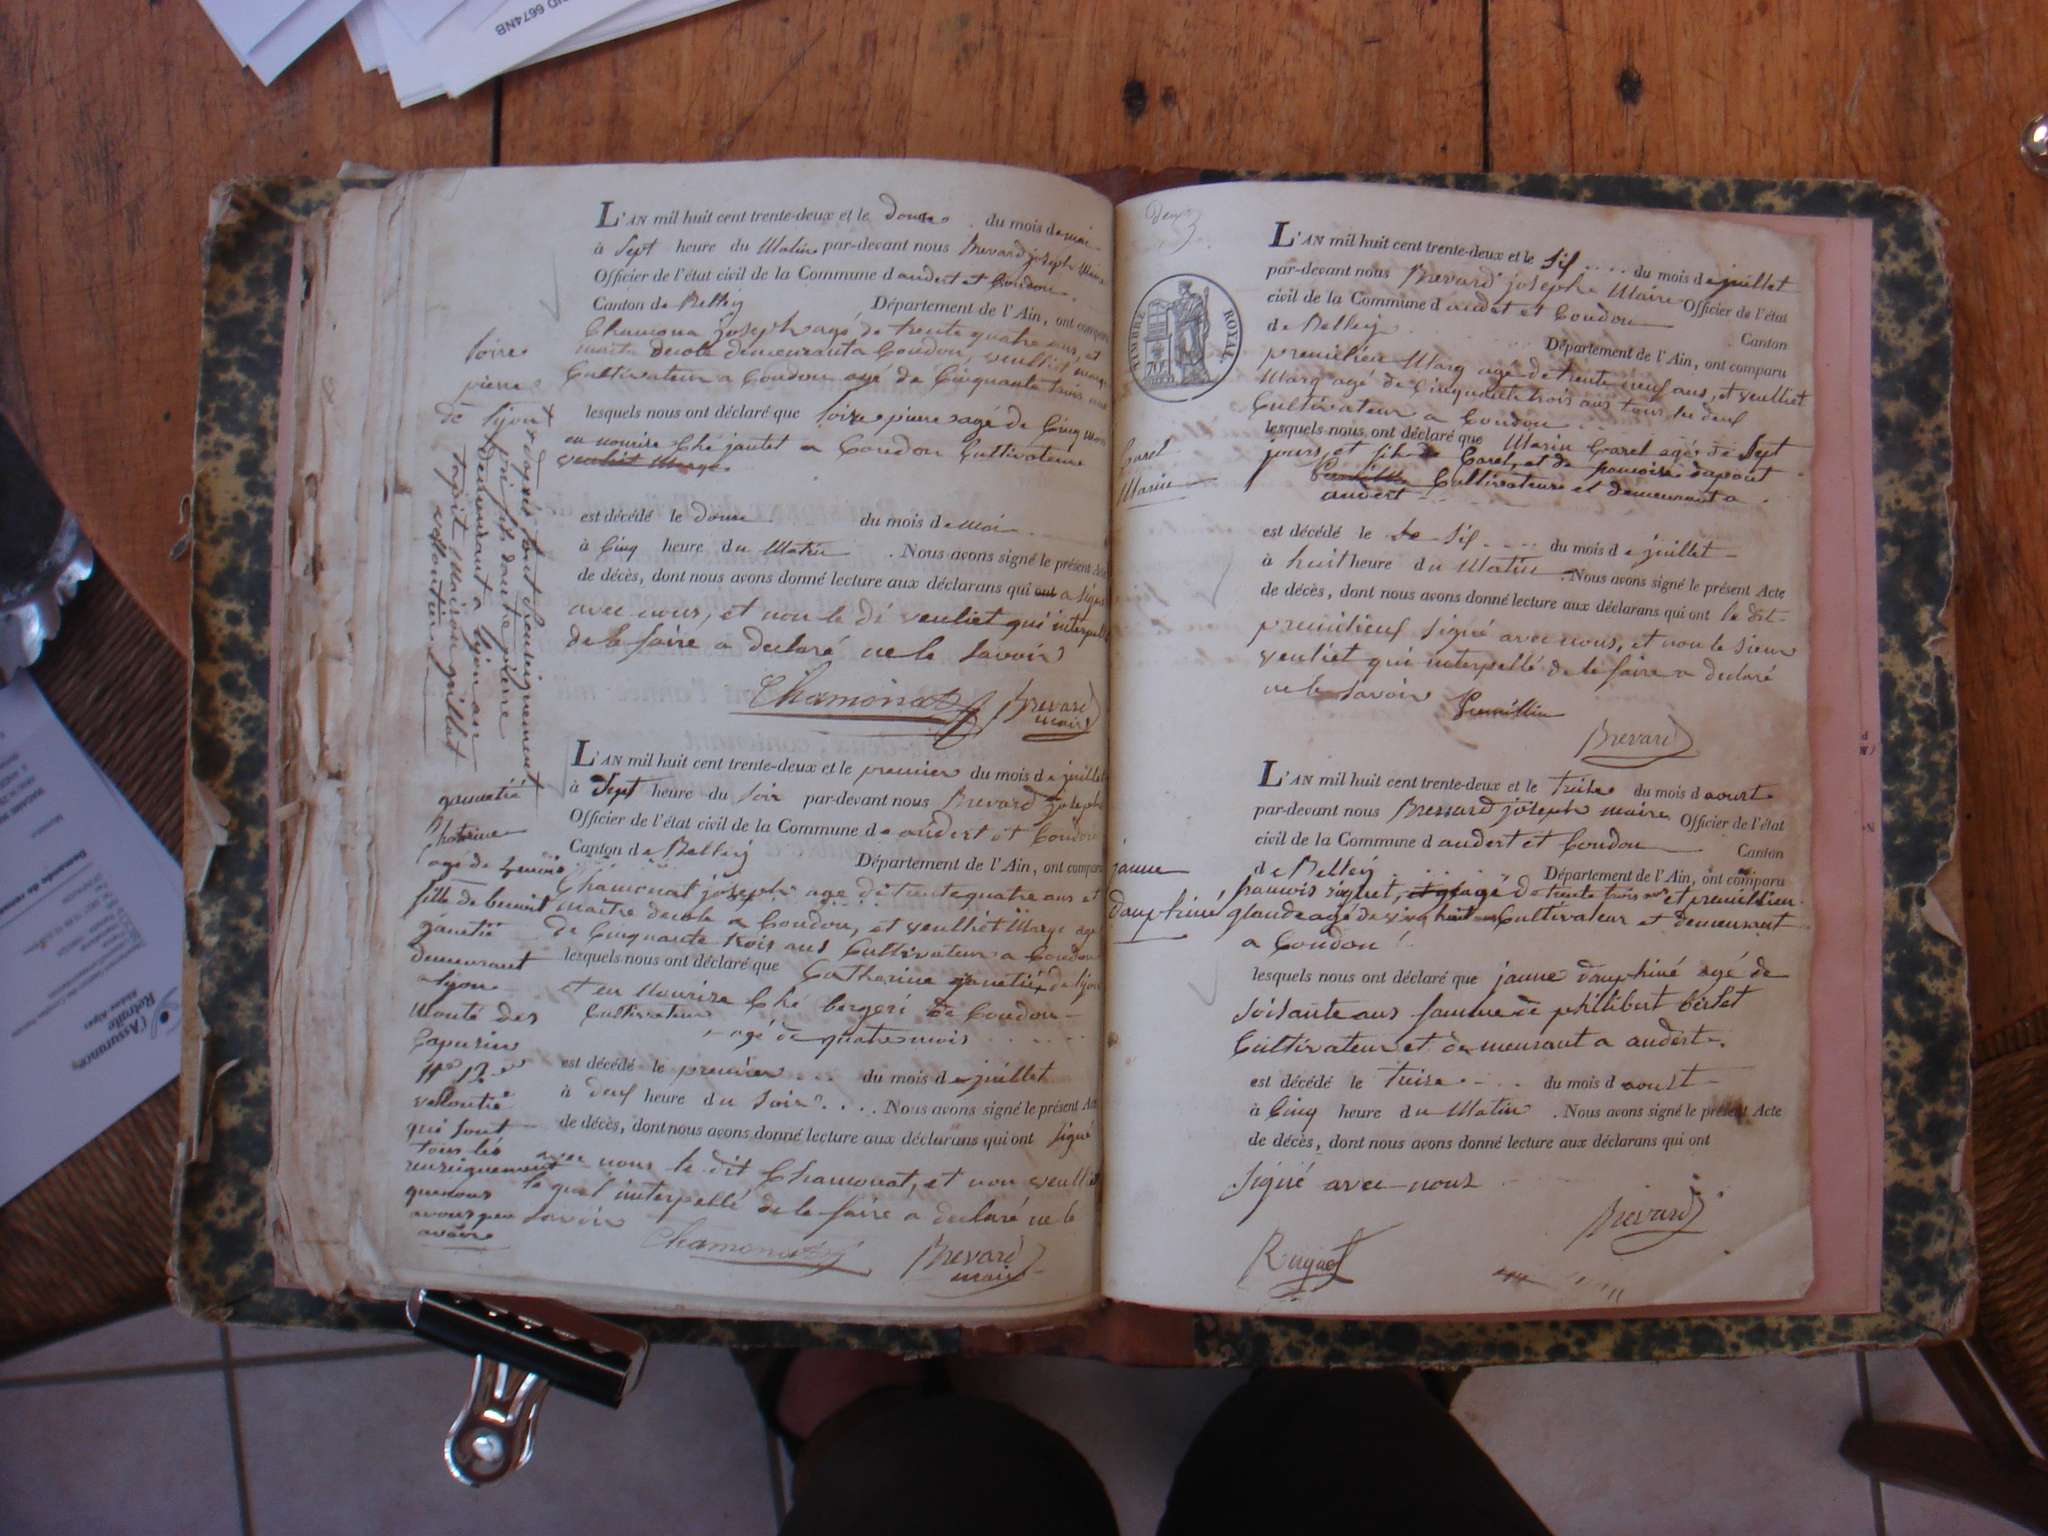 6674NB
L'AN mil huit cent trente-deux et le douse du mois de mai
à Sept heure du Matin par-devant nous Brevard joseph Maire
Officier de l'état civil de la Commune d andert et Condon
Canton de Belley Département de l'Ain, ont comparu
Chamona joseph agé de trente quatre ans, et
maitre decole demeurant a Condon, veulliet marge
Cultivateur a Condon agé de Cinquante trois ans
lesquels nous ont déclaré que loire pierre agé de Cinq mois
en nourise Ché jantet a Condon Cultivateur
veulliet Marge
est décédé le douse du mois de Mai
à Cinq heure du Matin . Nous avons signé le présent Acte
de décès, dont nous avons donné lecture aux déclarans qui ont a signé
avec nous, et non le di veuliet qui interpellé
de le faire a declaré ne le savoir
Chamonat Brevard
maire
loire
pierre
de lyon
L'AN mil huit cent trente-deux et le premier du mois de juillet
à Sept heure du soir par-devant nous Brevard joseph
Officier de l'état civil de la Commune de andert et Condon
Canton de Belley Département de l'Ain, ont comparu
Chamonat joseph age de trente quatre ans et
maitre decole a Condon, et veulliet Marge age
de Cinquante trois ans Cultivateur a Condon
lesquels nous ont déclaré que Catherine ganetié de lyon
et en Nourise Ché bergeri de Condon
Cultivateur agé de quatre mois
est décédé le premier du mois de juillet
à deuf heure du Soir . Nous avons signé le présent Acte
de décès, dont nous avons donné lecture aux déclarans qui ont signé
avec nous le dit Chamonat, et non veulliet
le quel interpellé de le faire a declaré ne le
savoir
Chamonat Brevard
maire
ganetié
age de 4 mois
fille de benoit
ganetié
demeurant
a lyon
Monté des
Capusin
N° 12
qui sont
tous lés
renseignement
que nous
avons peu
avoir
TIMBRE ROYAL
70
L'AN mil huit cent trente-deux et le Sif du mois de juillet
par-devant nous Brevard joseph Maire Officier de l'état
civil de la Commune d andert et Condon Canton
de Belley Département de l'Ain, ont comparu
premilieu Marg age de trente neuf ans, et veulliet
Marg agé de Cinquante trois ans tous les deuf
Cultivateur a Condon
lesquels nous ont déclaré que Marin Carel agé de Sept
jours, et fils de Carel, et de francoise dapont
Cultivateur et demeurant a
andert
est décédé le Sif du mois de juillet
à huit heure du Matin . Nous avons signé le présent Acte
de décès, dont nous avons donné lecture aux déclarans qui ont le dit
premilieuf signé avec nous, et non le sieur
veuliet qui interpellé de le faire a declaré
ne le savoir
Brevard
Carel
Marin
L'AN mil huit cent trente-deux et le treise du mois d aoust
par-devant nous Bressard joseph maire Officier de l'état
civil de la Commune d andert et Condon Canton
de Belley Département de l'Ain, ont comparu
francois ruguet, agé de trente trois ans et premilieu
glaude agé de vingt huit ans Cultivateur et demeurant
a Condon
lesquels nous ont déclaré que janne dauphiné agé de
soisante ans famme de philibert berlet
Cultivateur et demeurant a andert
est décédé le treise du mois d aoust
à Cinq heure du Matin . Nous avons signé le présent Acte
de décès, dont nous avons donné lecture aux déclarans qui ont
Signé avec nous
Brevard
Ruguet
janne
dauphiné
l'Assurance
Retraite